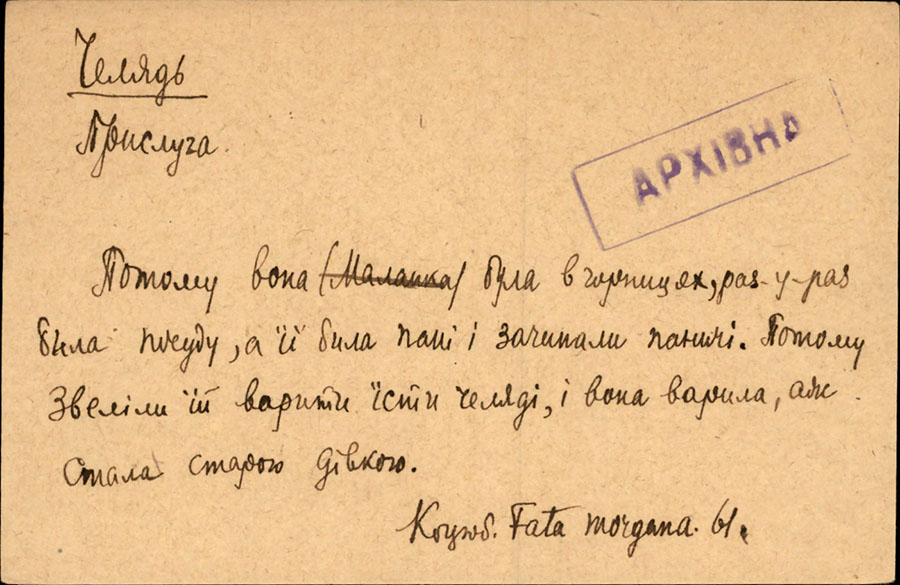 Челядь
Прислуга.
АРХІВНА
Потому вона (Маланка) була в горницях, раз-у-раз
била посуду, а її била пані і зачипали паничі. Потому
звеліли їй варити їсти челяді, і вона варила, аж
стала старою дівкою.
Коцюб. Fata morgana. 61.